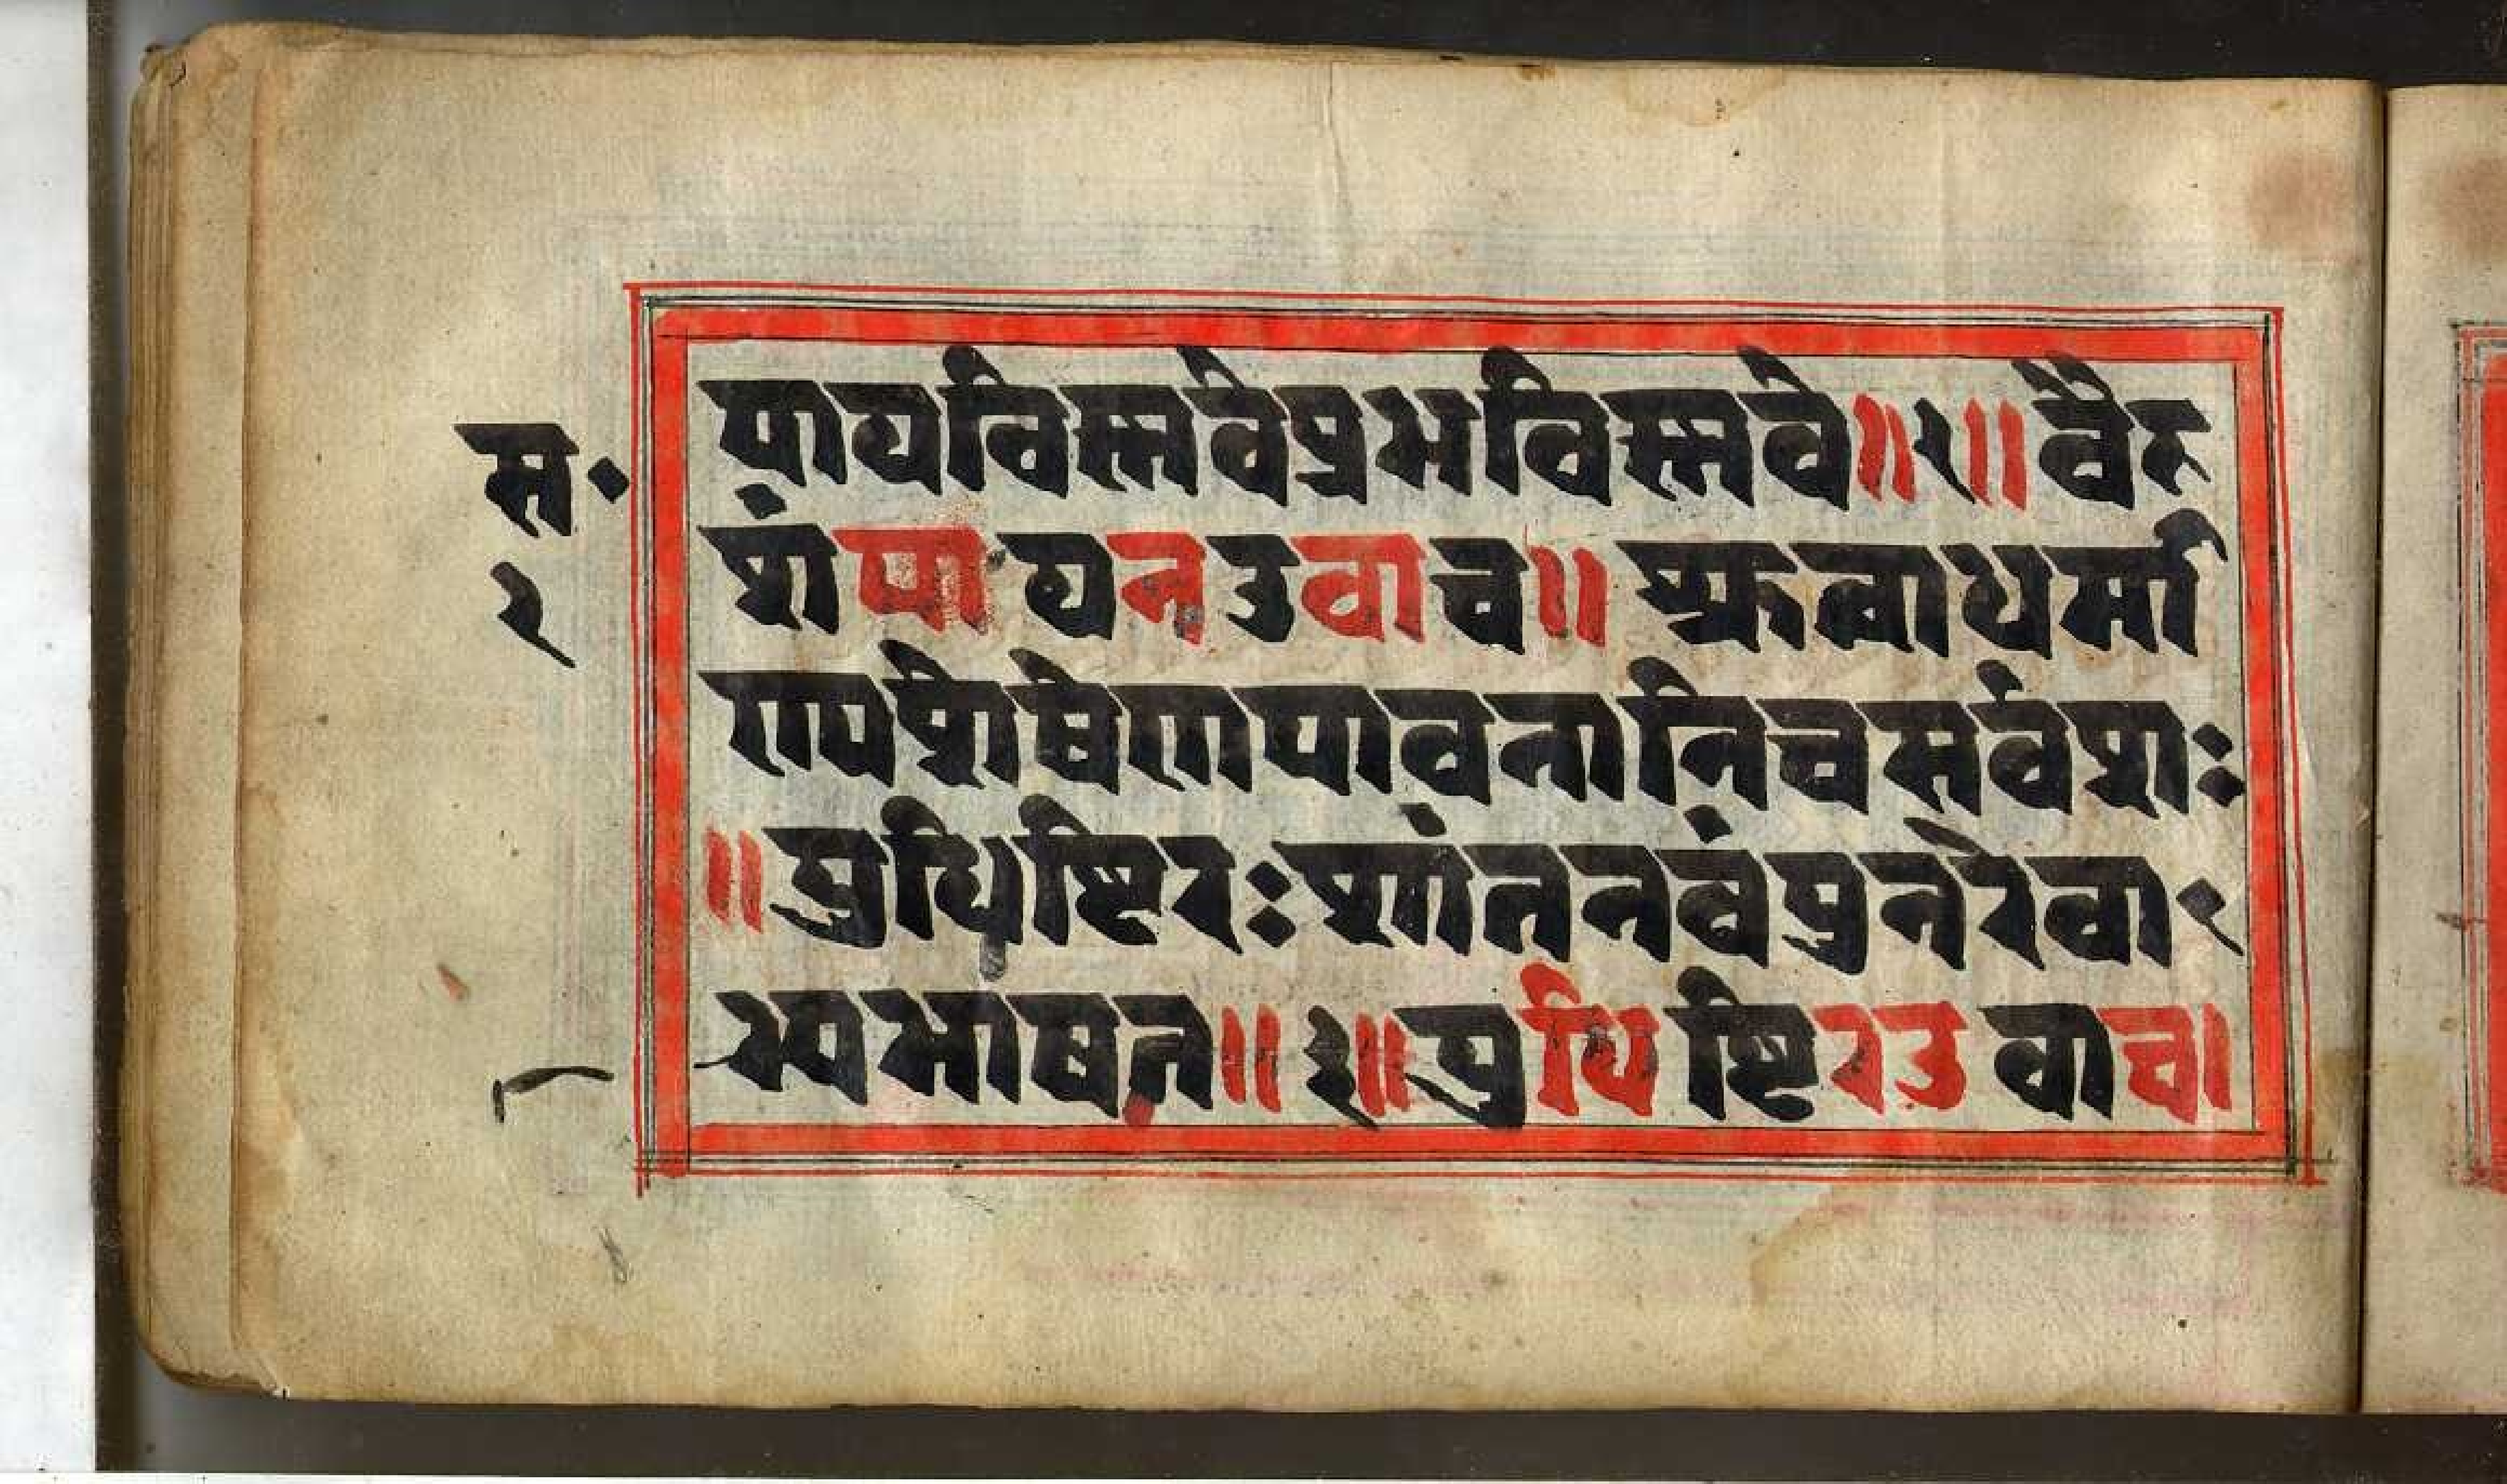 स॰
२
पायविस्नवेप्रभविस्नवे॥२॥वैस
शंपायनउवाच॥श्रुत्वाधर्मा
णपशेषेणपावनानिचसर्वशः
॥युधिष्टिरःशांतनवंपुनरेवा
भ्यभाषत॥३॥युधिष्टिरउवाच।